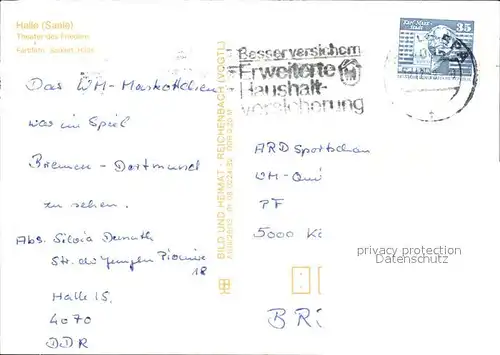 Halle (Saale)
Theater des Friedens
Besser versichern
Erweiterte
Haushalt-
versicherung
Karl-Marx-
Stadt
35
DDR
BILD UND HEIMAT · REICHENBACH (VOGTL)
Das WM-Maskottchen
war im Spiel
Bremen - Dortmund
zu sehen.
Abs. Silvia
Str. der jungen Pioniere
18
Halle 15,
4070
DDR
ARD Sportschau
WM-Qui
PF
5000 Kö
BR
privacy protection
Datenschutz